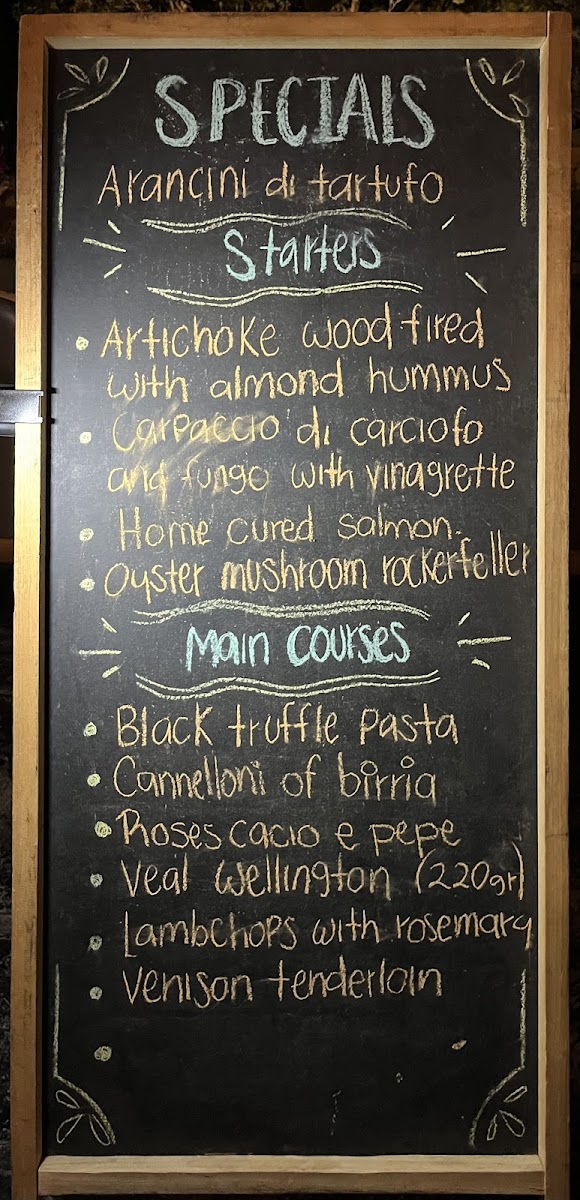 SPECIALS
Arancini di tartufo
Starters
• Artichoke wood fired
with almond hummus
• Carpaccio di carciofo
and fungo with vinagrette
• Home cured salmon.
• Oyster mushroom rockerfeller
Main Courses
• Black truffle pasta
• Cannelloni of birria
• Roses cacio e pepe
• Veal Wellington (220gr)
• Lambchops with rosemary
• Venison tenderloin
•